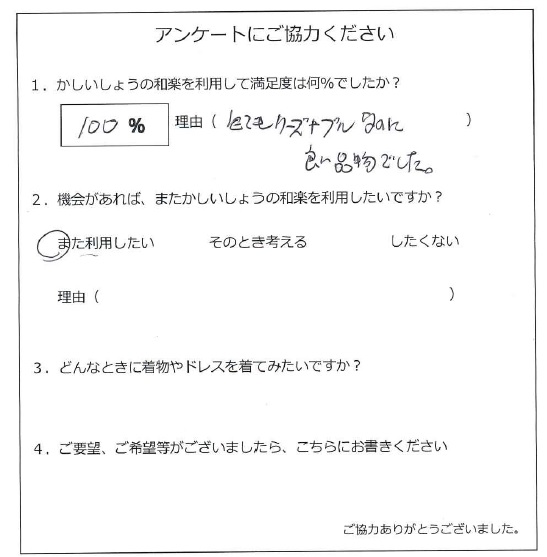 アンケートにご協力ください
1．かしいしょうの和楽を利用して満足度は何%でしたか？
100 % 理由（ とてもリーズナブルなのに ）
良い品物でした。
2．機会があれば、またかしいしょうの和楽を利用したいですか？
また利用したい そのとき考える したくない
理由（ ）
3．どんなときに着物やドレスを着てみたいですか？
4．ご要望、ご希望等がございましたら、こちらにお書きください
ご協力ありがとうございました。